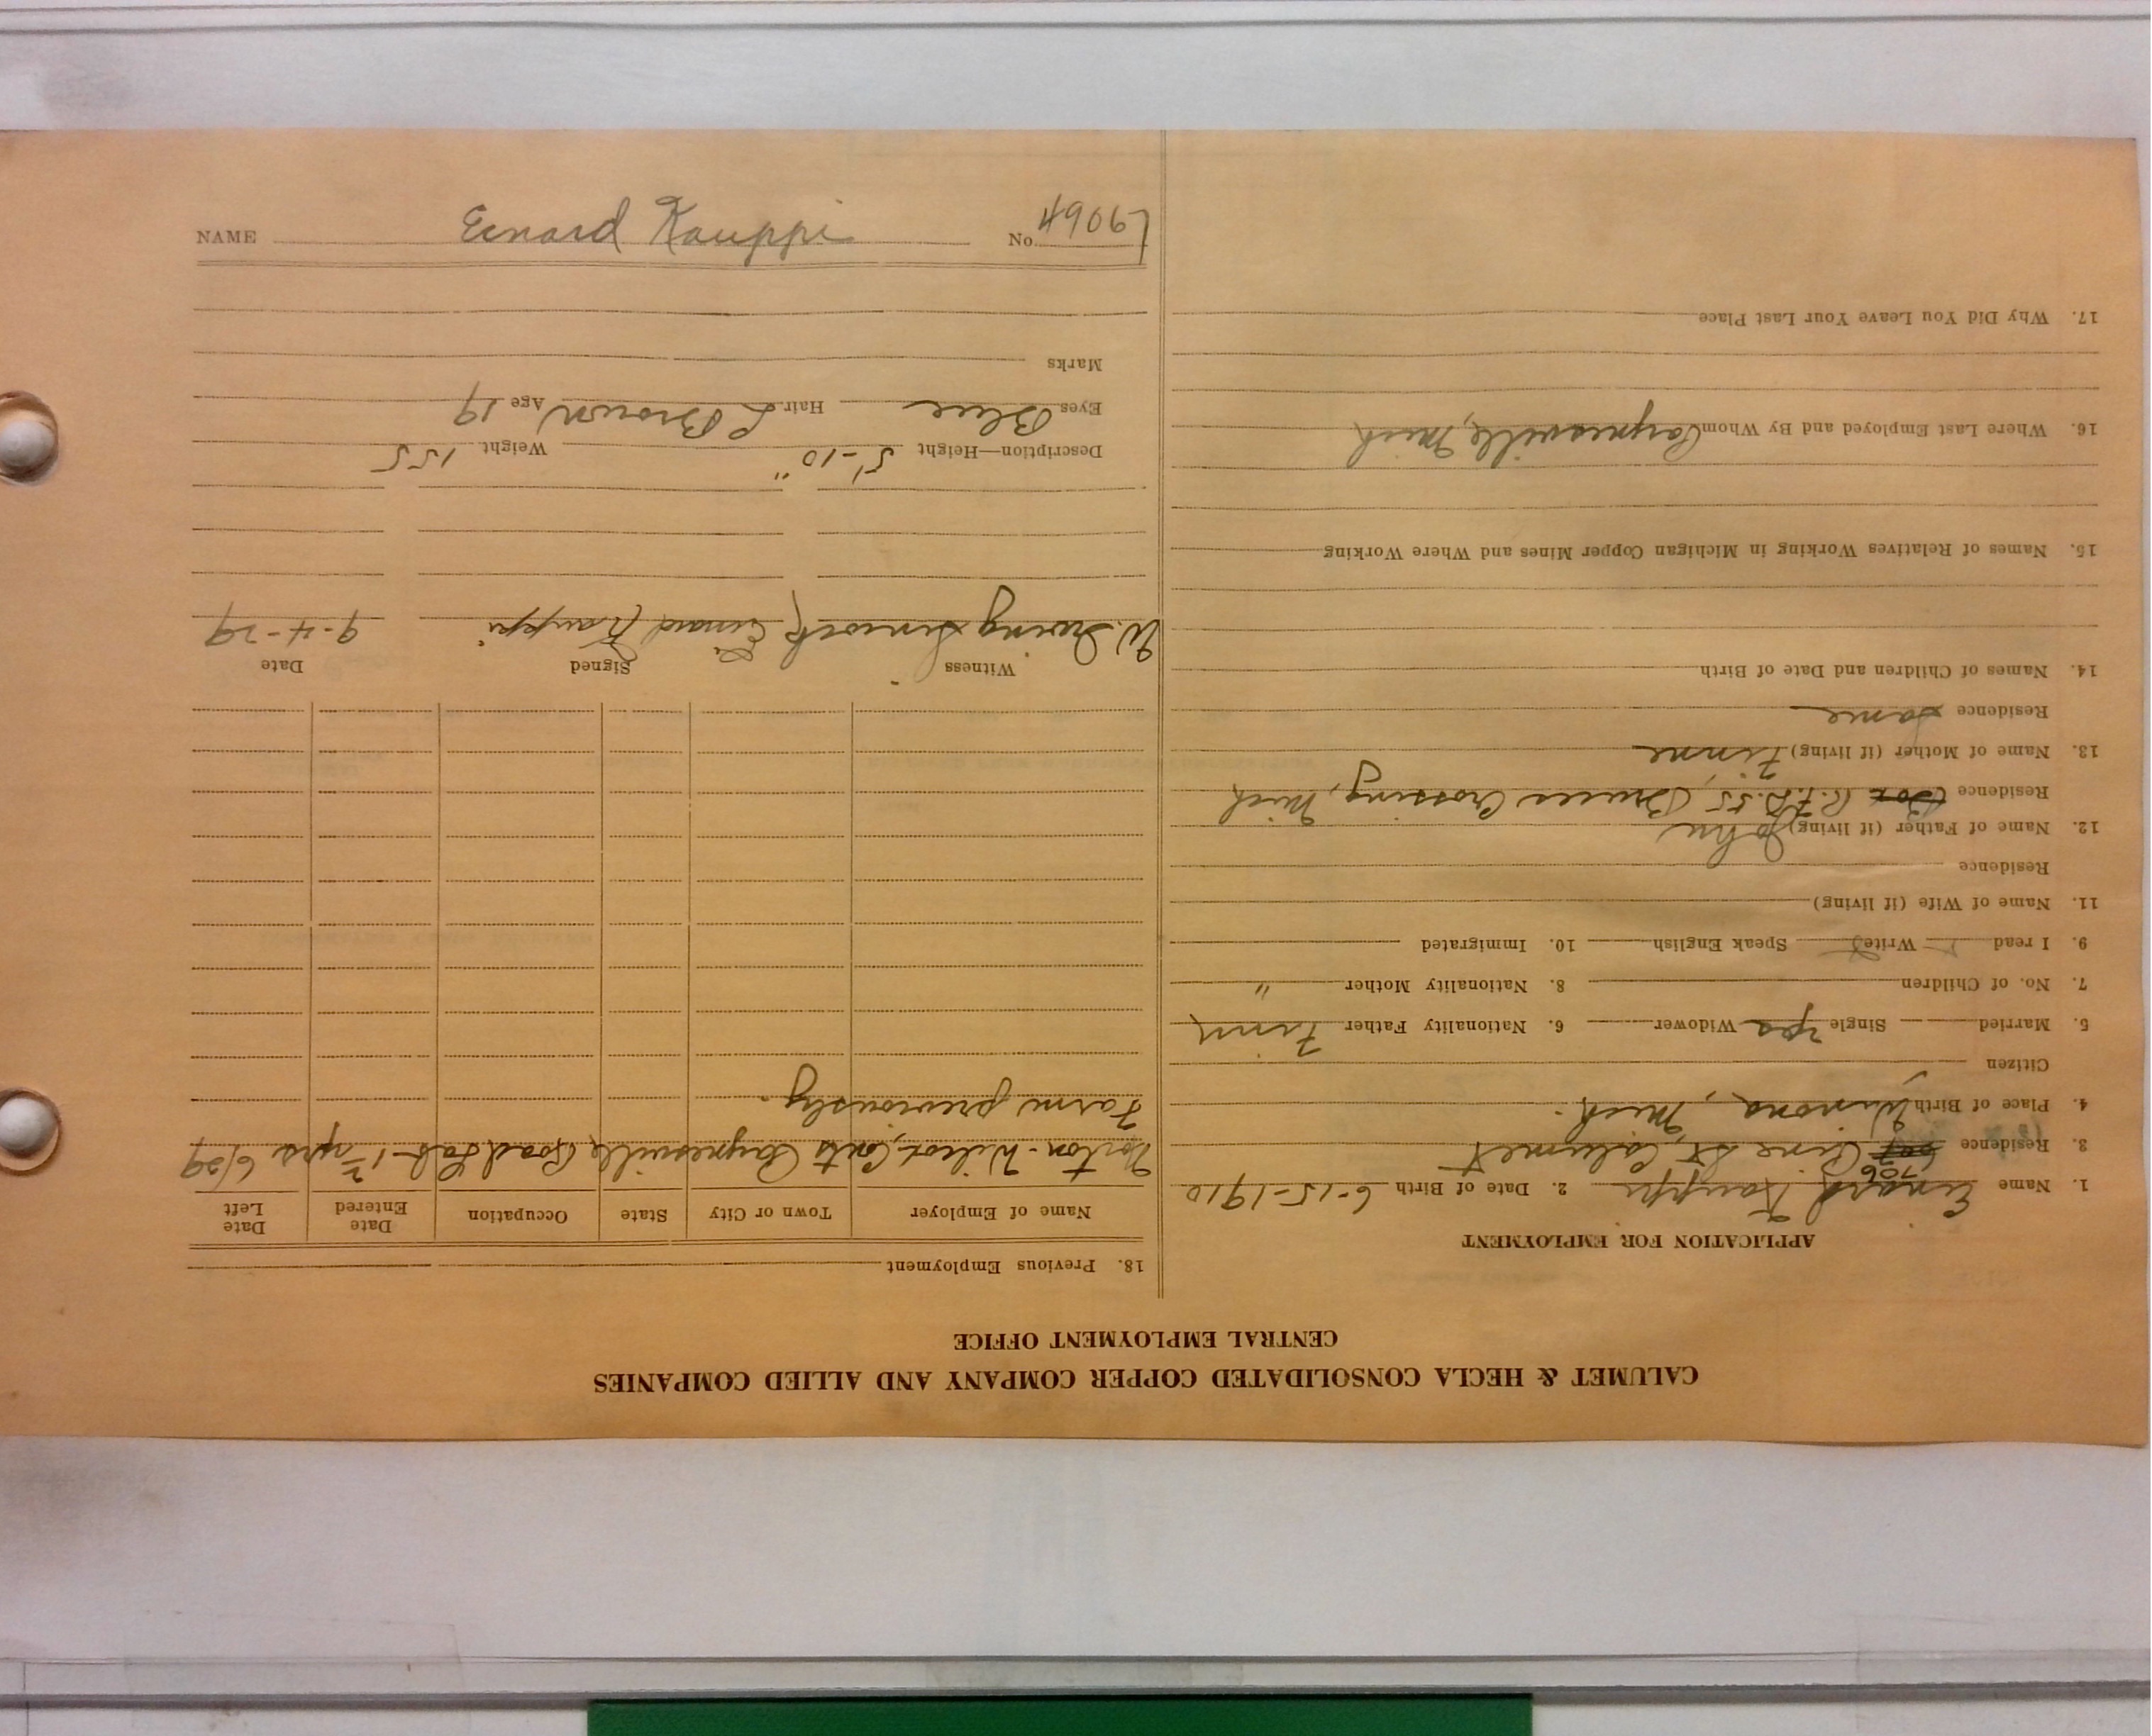 CALUMET & HECLA CONSOLIDATED COPPER COMPANY AND ALLIED COMPANIES
CENTRAL EMPLOYMENT OFFICE
APPLICATION FOR EMPLOYMENT
1. Name Einard Kauppi 2. Date of Birth 6-15-1910
706
3. Residence Pine St, Calumet
4. Place of Birth Winona, Mich.
Citizen
5. Married Single yes Widower 6. Nationality Father Finn
7. No. of Children 8. Nationality Mother "
9. I read Write Speak English 10. Immigrated
11. Name of Wife (if living)
Residence
12. Name of Father (if living) John
Residence Box R.F.D. 55, Bruces Crossing, Mich
13. Name of Mother (if living) Finne
Residence Same
14. Names of Children and Date of Birth
15. Names of Relatives Working in Michigan Copper Mines and Where Working
16. Where Last Employed and By Whom Paynesville, Mich
17. Why Did You Leave Your Last Place
18. Previous Employment
Name of Employer Town or City State Occupation Date Entered Date Left
Conts Paynesville Road Lab- 1 1/2 yrs 6/29
Farm previously.
Witness Signed Date
W. Irving Einard Kauppi 9-4-29
Description—Height 5'-10" Weight 155
Eyes Blue Hair L Brown Age 19
Marks
NAME Einard Kauppi No. 49067